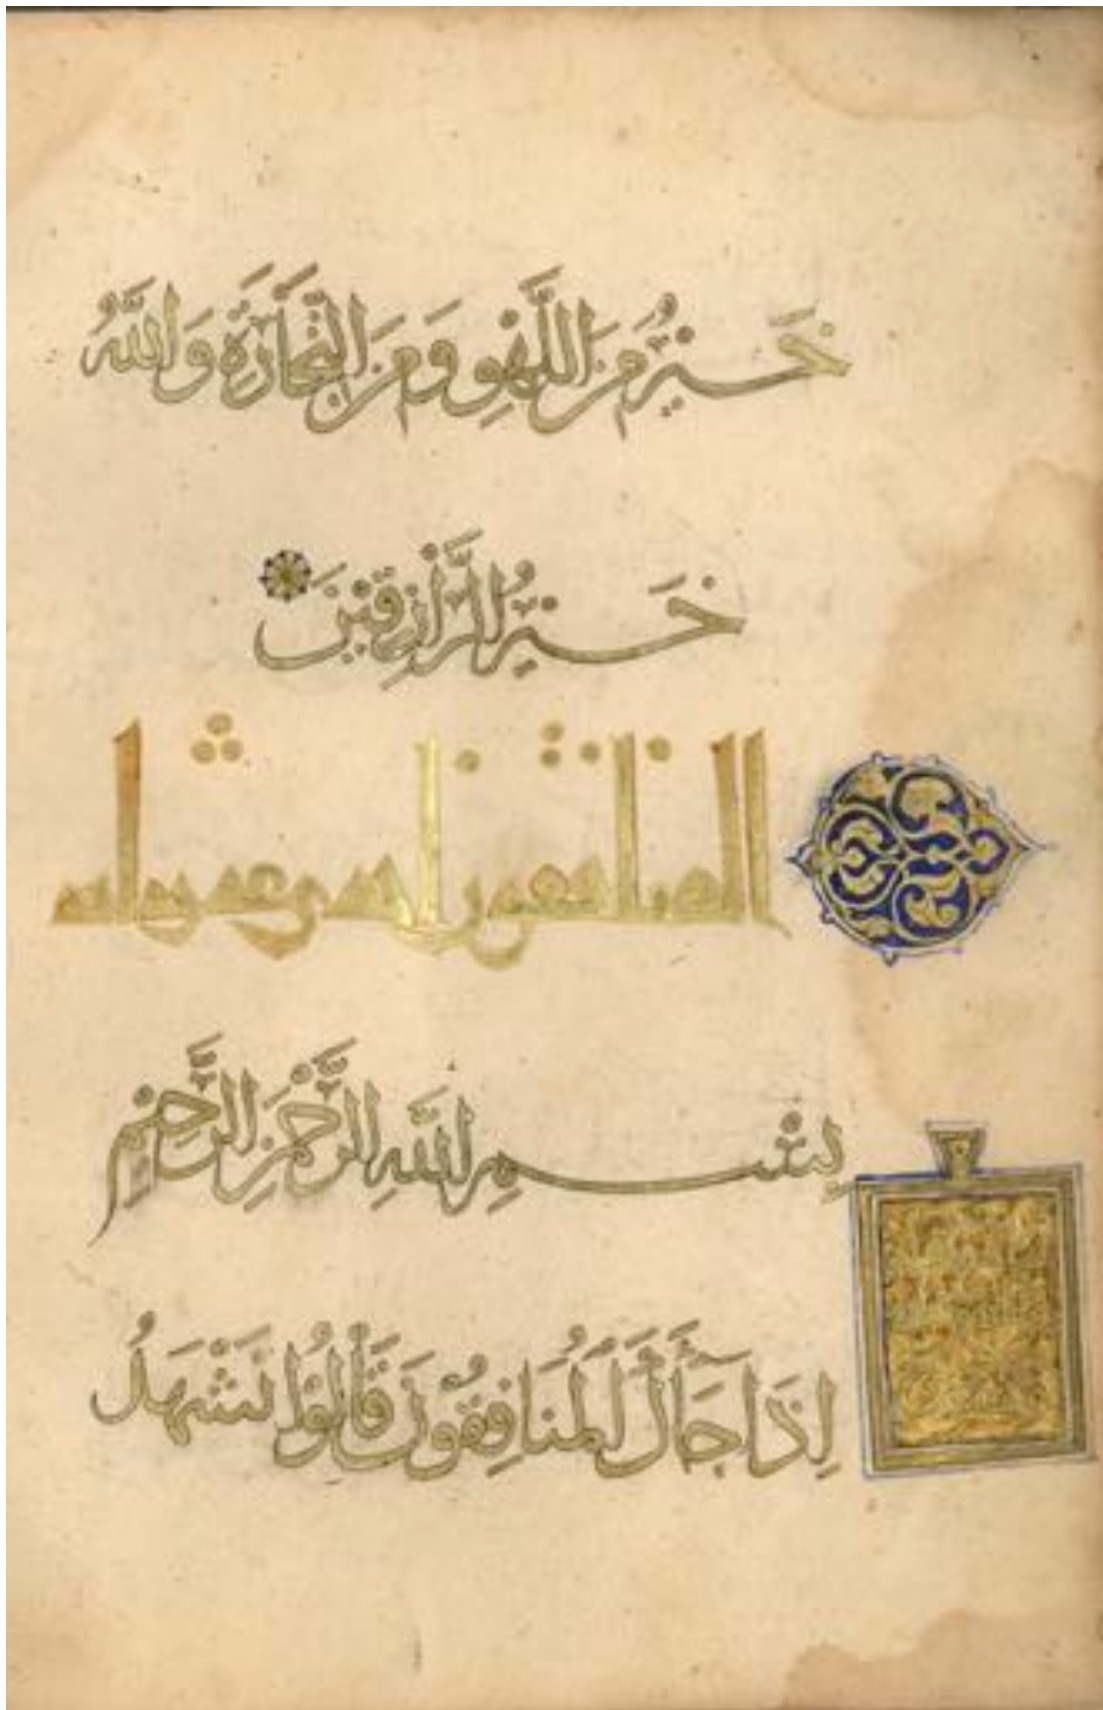 خَيْرٌ مِنَ اللَّهْوِ وَمِنَ التِّجَارَةِ وَاللَّهُ
خَيْرُ الرَّازِقِينَ
المنافقون احدى عشر اية
بِسْمِ اللَّهِ الرَّحْمَنِ الرَّحِيمِ
إِذَا جَاءَكَ الْمُنَافِقُونَ قَالُوا نَشْهَدُ